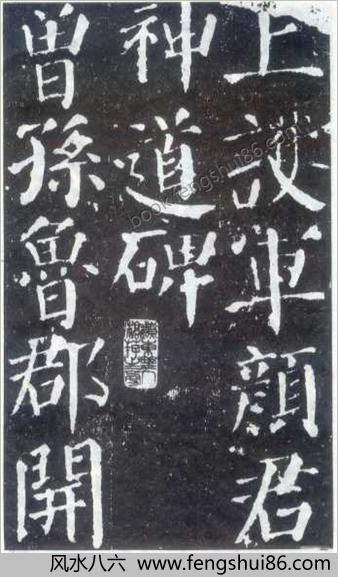 上護軍顏君
神道碑
曾孫魯郡開
book.fengshui86.com
风水八六 www.fengshui86.com